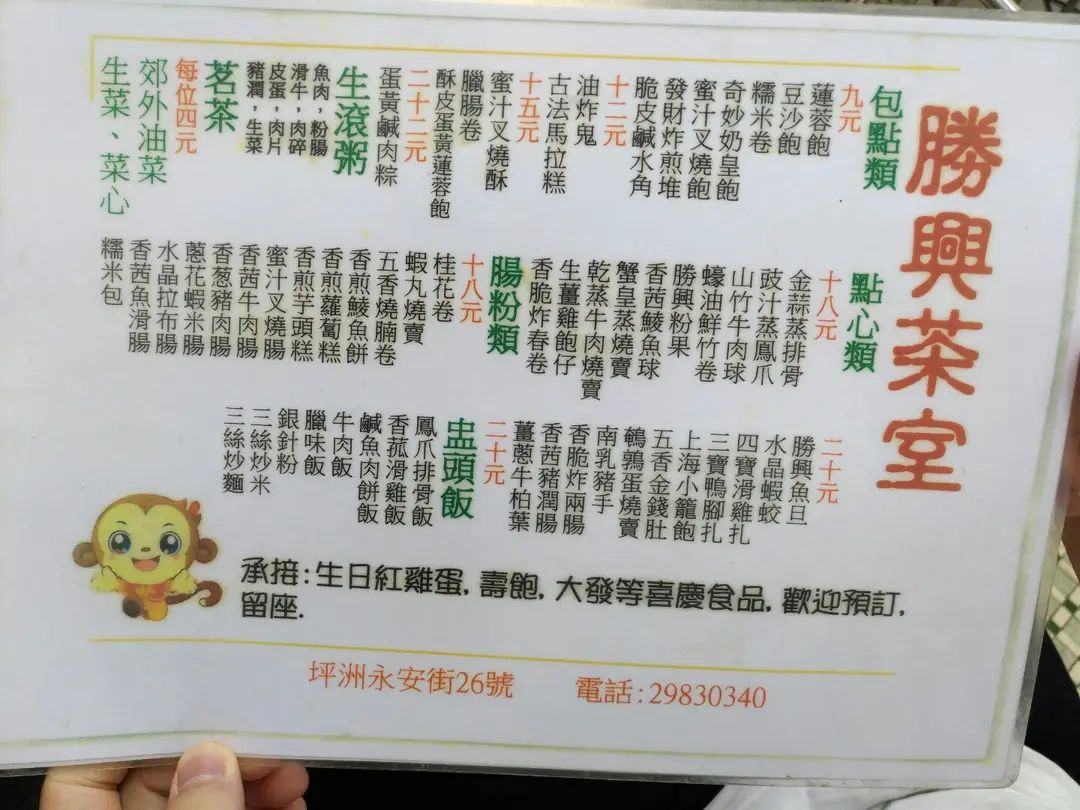 勝興茶室
包點類
九元
蓮蓉飽
豆沙飽
糯米卷
奇妙奶皇飽
蜜汁叉燒飽
發財炸煎堆
脆皮鹹水角
十二元
油炸鬼
古法馬拉糕
十五元
蜜汁叉燒酥
臘腸卷
酥皮蛋黃蓮蓉飽
二十二元
蛋黃鹹肉粽
生滾粥
魚肉，粉腸
滑牛，肉碎
皮蛋，肉片
豬潤，生菜
茗茶
每位四元
郊外油菜
生菜、菜心
點心類
十八元
金蒜蒸排骨
豉汁蒸鳳爪
山竹牛肉球
蠔油鮮竹卷
勝興粉果
香茜鯪魚球
蟹皇蒸燒賣
乾蒸牛肉燒賣
生薑雞飽仔
香脆炸春卷
腸粉類
十八元
桂花卷
蝦丸燒賣
五香燒腩卷
香煎鯪魚餅
香煎蘿蔔糕
香煎芋頭糕
蜜汁叉燒腸
香茜牛肉腸
香葱豬肉腸
蔥花蝦米腸
水晶拉布腸
香茜魚滑腸
糯米包
二十元
勝興魚旦
水晶蝦蛟
四寶滑雞扎
三寶鴨腳扎
上海小籠飽
五香金錢肚
鵪鶉蛋燒賣
南乳豬手
香脆炸兩腸
香茜豬潤腸
薑蔥牛柏葉
二十元
盅頭飯
鳳爪排骨飯
香菰滑雞飯
鹹魚肉餅飯
牛肉飯
臘味飯
銀針粉
三絲炒米
三絲炒麵
承接:生日紅雞蛋, 壽飽, 大發等喜慶食品, 歡迎預訂,
留座.
坪洲永安街26號 電話:29830340